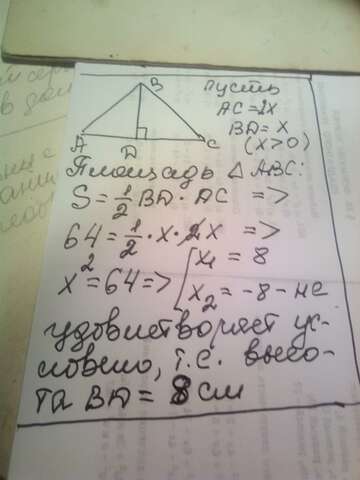 B
Пусть
AC = 2x
BD = x
(x>0)
A
D
C
Площадь △ ABC:
S = 1/2 BD · AC =>
64 = 1/2 · x · 2x =>
x² = 64 => [ x₁ = 8
x₂ = -8 - не
удовлетворяет ус-
ловию, т.е. высо-
та BD = 8 см